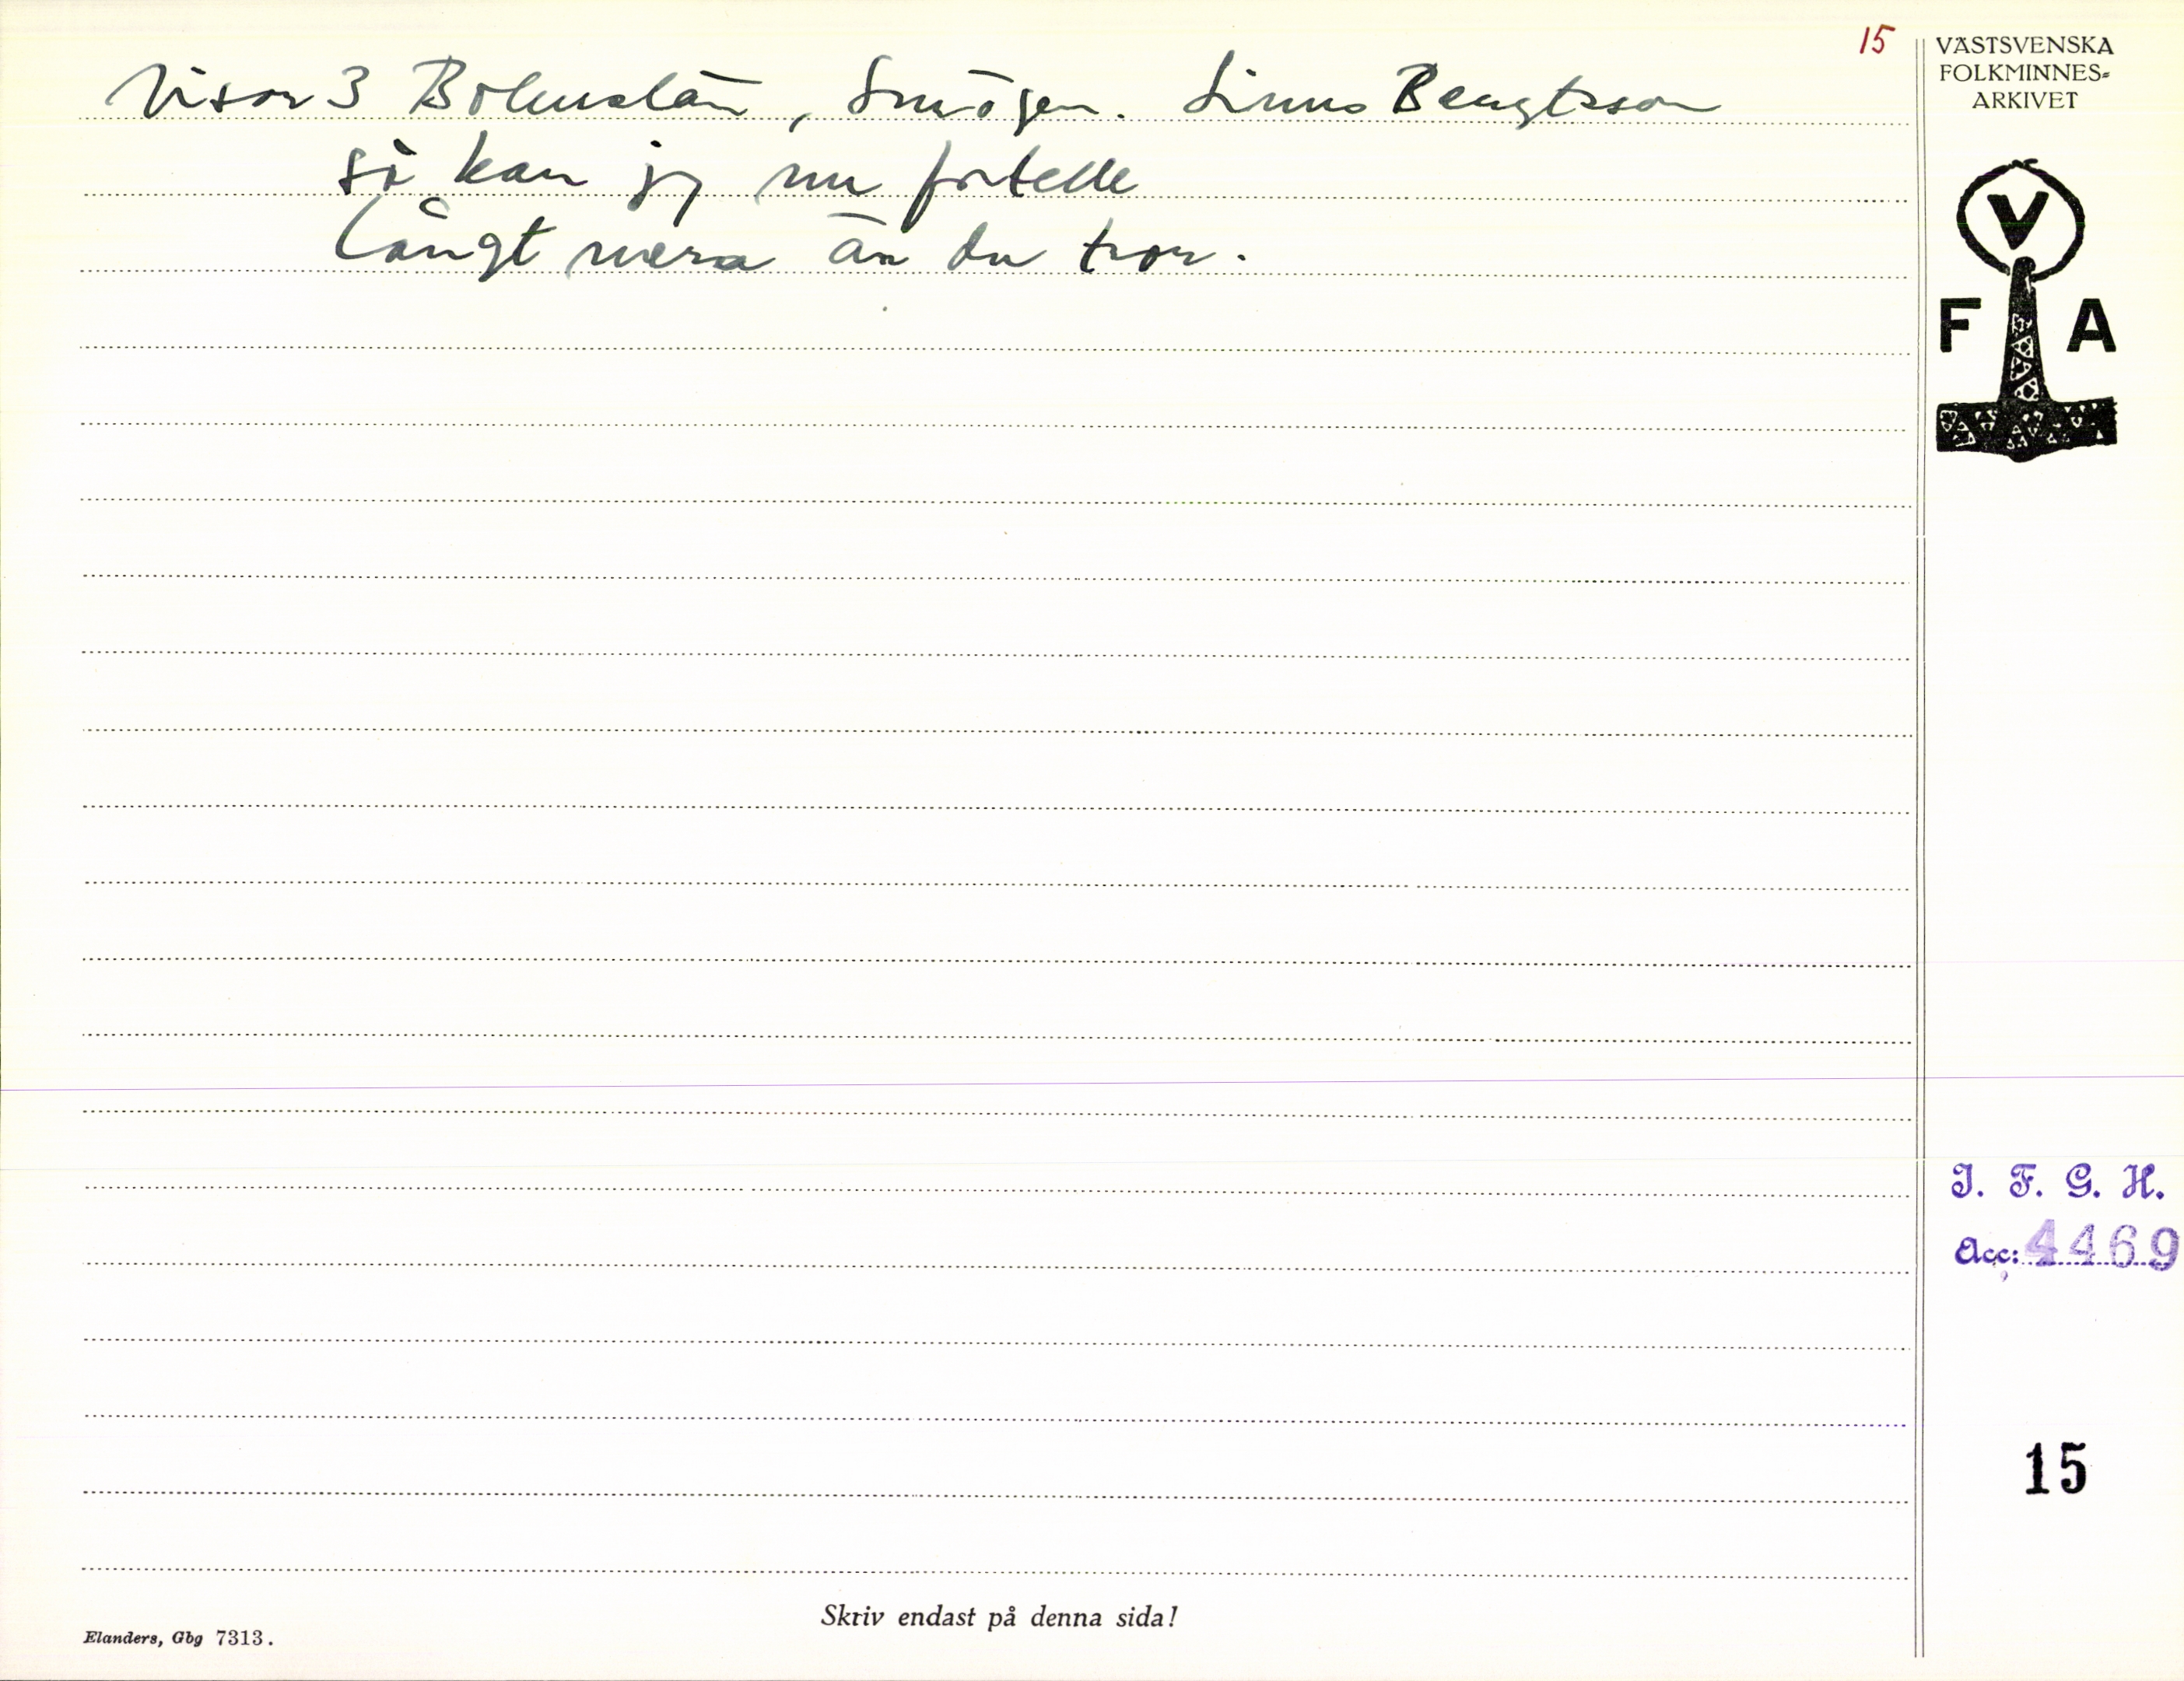 15
Visor 3 Bohuslän, Smögen. Linus Bengtsson
så kan jag nu förtelle
långt mera än du tror.
VÄSTSVENSKA
FOLKMINNES=
ARKIVET
V
F A
I. F. G. H.
Acc: 4469
15
Skriv endast på denna sida!
Elanders, Gbg 7313.